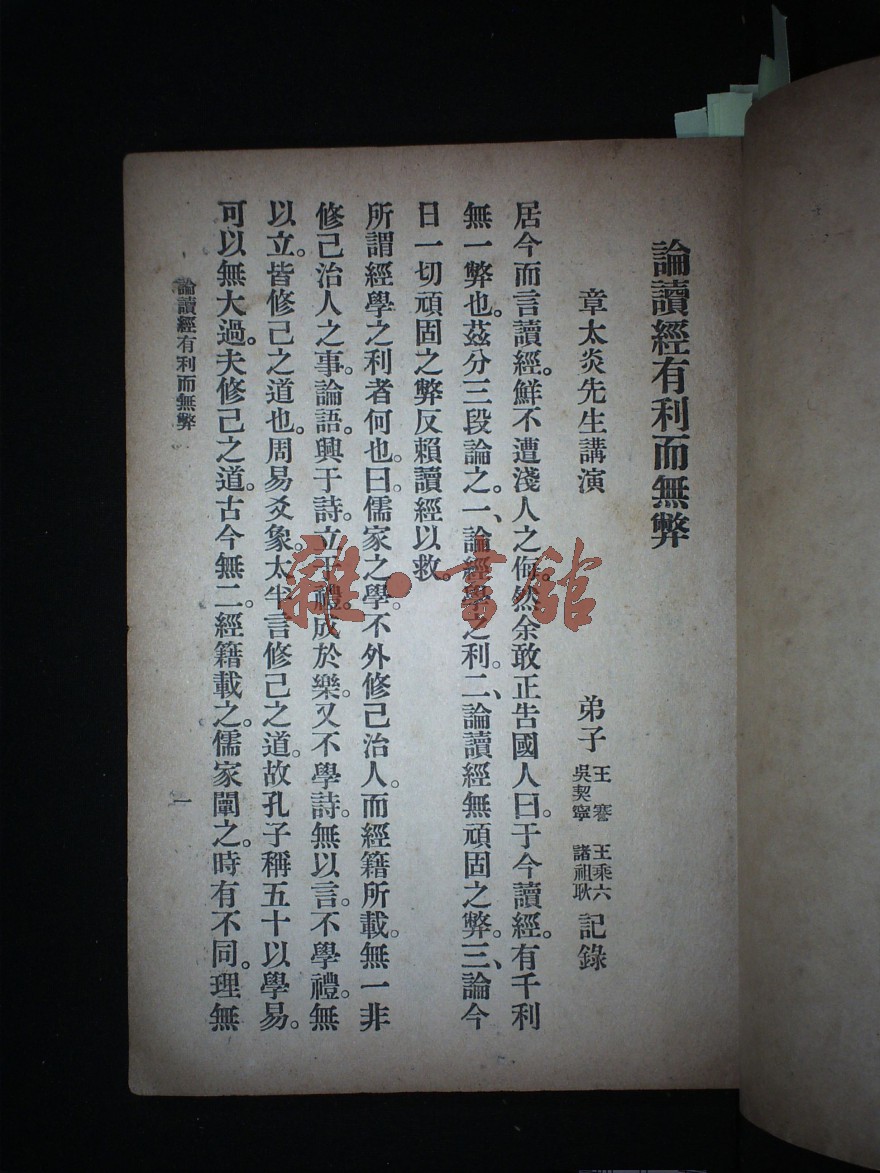 論讀經有利而無弊
章太炎先生講演
弟子 王謇 王乘六 吳契寧 諸祖耿 記錄
居今而言讀經。鮮不遭淺人之侮。然余敢正告國人曰。于今讀經。有千利
無一弊也。茲分三段論之。一、論經學之利。二、論讀經無頑固之弊。三、論今
日一切頑固之弊反賴讀經以救。
所謂經學之利者何也。曰。儒家之學。不外修己治人。而經籍所載。無一非
修己治人之事。論語。興于詩。立于禮。成於樂。又不學詩。無以言。不學禮。無
以立。皆修己之道也。周易爻象。太半言修己之道。故孔子稱五十以學易。
可以無大過。夫修己之道。古今無二。經籍載之。儒家闡之。時有不同。理無
論讀經有利而無弊
一
雜·書館